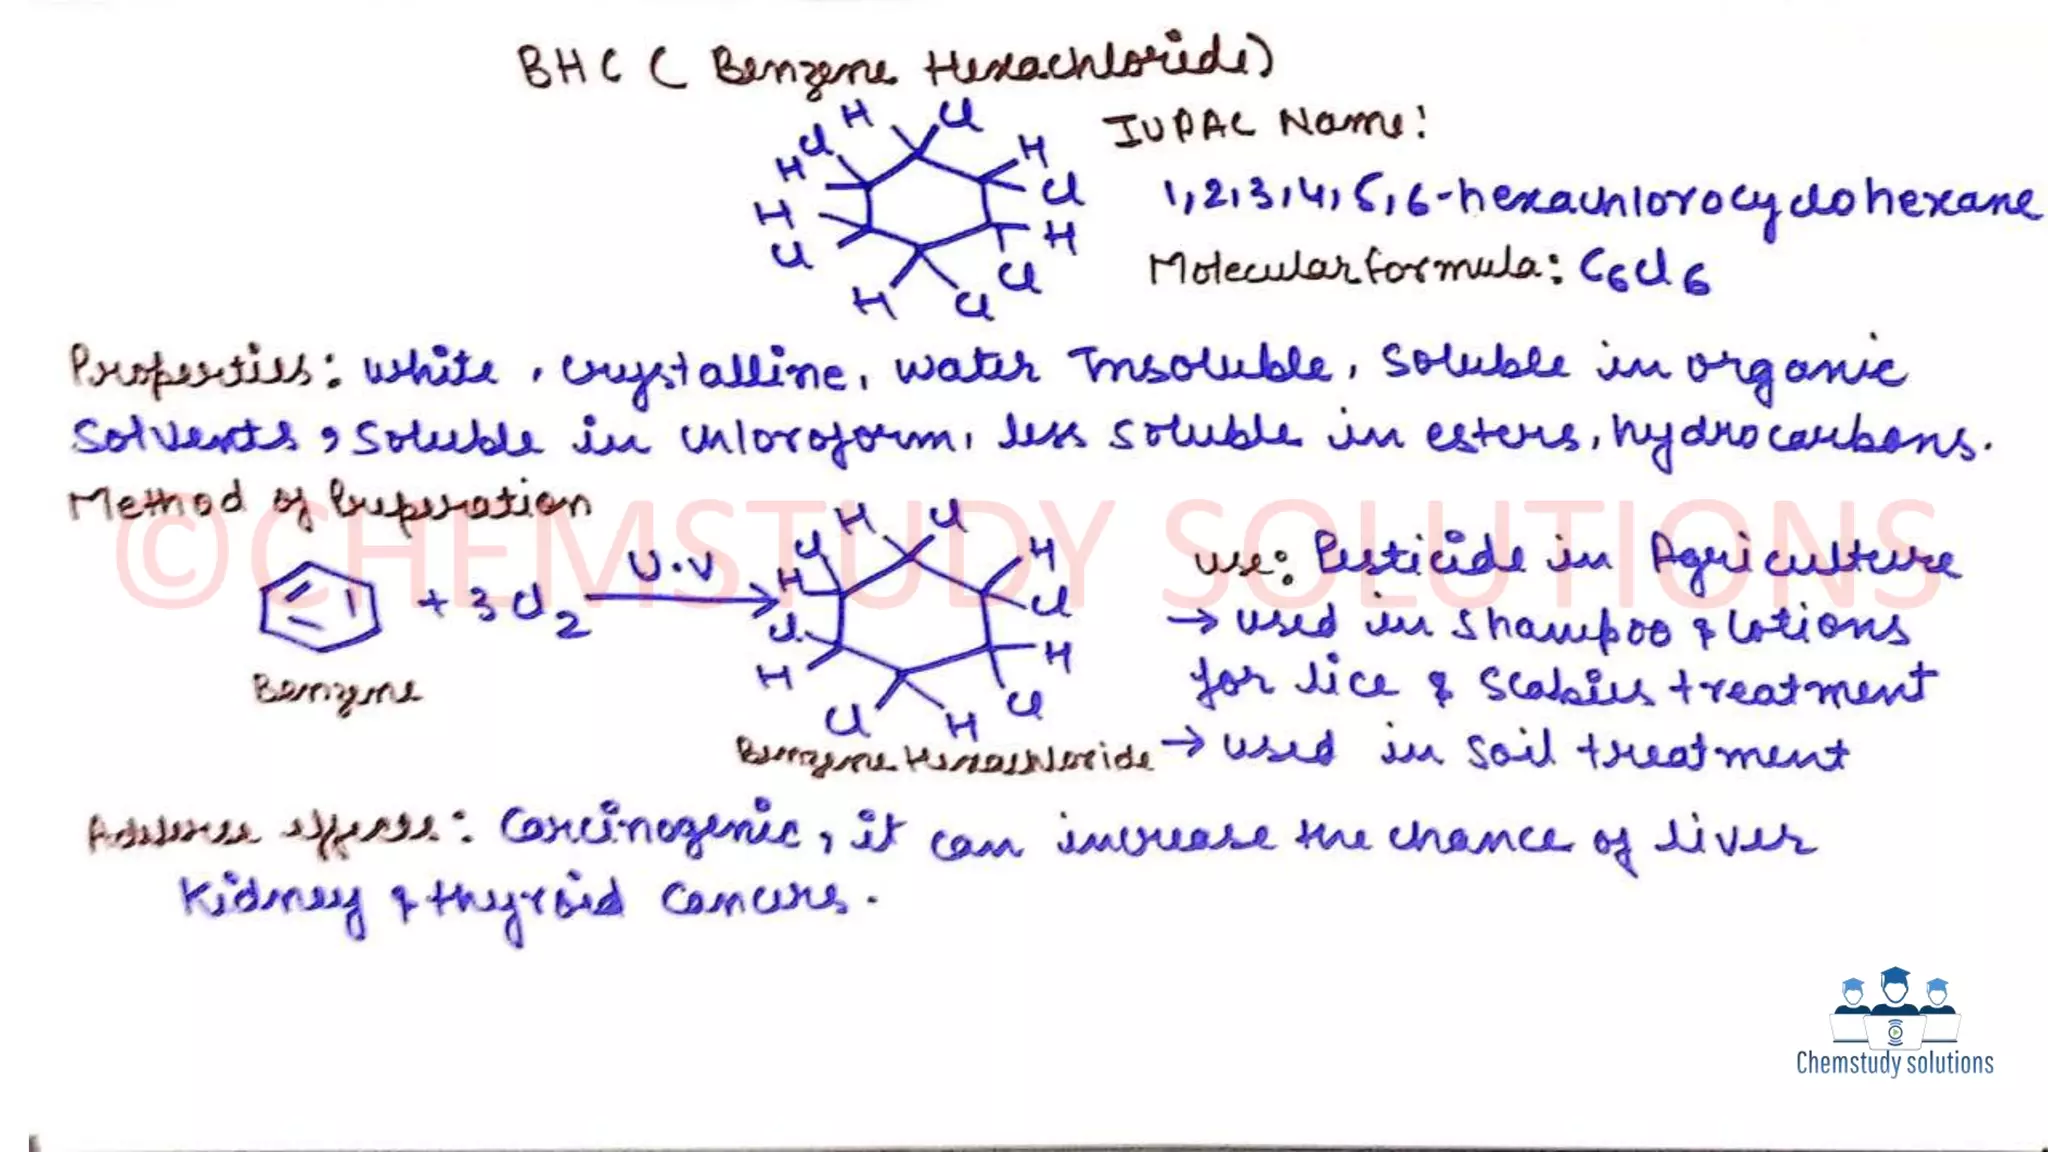 BHC ( Benzene Hexachloride)
H Cl
Cl H
H Cl
H H
Cl Cl
H Cl
IUPAC Name:
1,2,3,4,5,6-hexachlorocyclohexane
Molecular formula: C6Cl6
Properties: White, crystalline, water Insoluble, Soluble in organic
Solvents, Soluble in chloroform, less soluble in esters, hydrocarbons.
Method of Preperation
©CHEMSTUDY SOLUTIONS
+ 3Cl2 U.V
Benzene
H Cl
Cl H
H Cl
Cl H
H Cl
Cl H
Benzene Hexachloride
Use: Pesticide in Agriculture
→ Used in Shampoo & lotions
for lice & Scabies treatment
→ Used in Soil treatment
Adverse effects: Carcinogenic, it can increase the chance of liver
Kidney & thyroid Cancers.
Chemstudy solutions